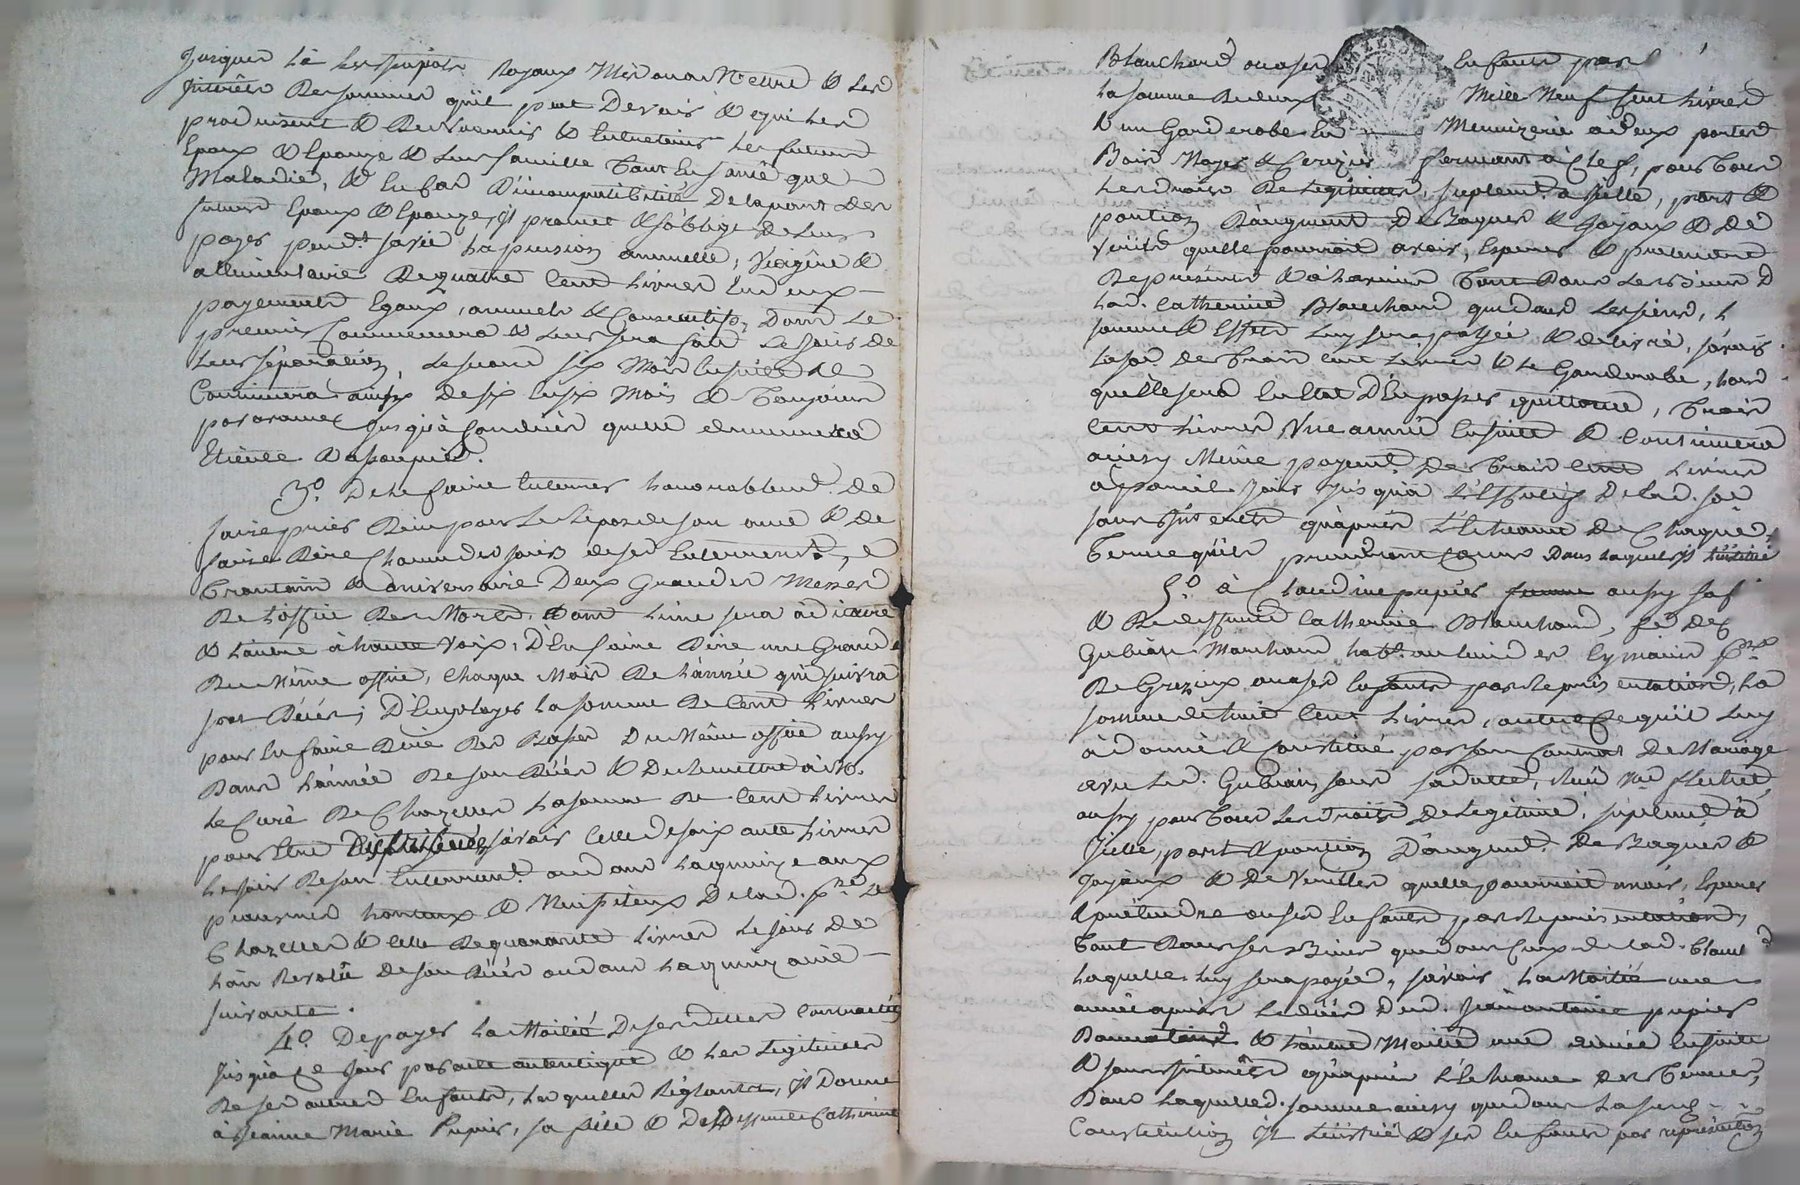 jusques là les impots Royaux mis ou a mettre & les
interêts des sommes qu'il peut devoir & qui les
produisent & de nourrir & entretenir les futurs
Epoux & Epouze & leur famille tant en santé que
maladie, & en cas d'incompatibilité de la part des
futurs Epoux & Epouze, il promet & s'oblige de leur
payer pendt sa vie la pension annuelle, viagère &
allimentaire de quatre cent livres en deux
payements Egaux, annuels & consecutifs, dont le
premier commencera & leur sera fait le jour de
leur séparation, le second six mois ensuite &
continuera ainsy de six en six mois & toujours
par avance jusqu'à
Etienne Dapoupier.
3o. De le faire enterrer honorablemt. de
faire prier Dieu pour le repos de son ame & de
faire dire chacun des jours de ses enterrement,
trantain & anniversaire deux Grandes Messes
de l'office des Morts, dont l'une sera à diacre
& l'autre à haute voix; d'en faire dire une Grande
du même office, chaque mois de l'année qui suivra
son décés; d'employer la somme de cent livres
pour en faire dire des Basses du même office aussy
dans l'année de son décés & de remettre à Mr.
le Curé de Chazelles la somme de cent livres
pour être distribuée, sçavoir celle de soixante livres
le jour de son enterrement. ou dans la quinzaine aux
pauvres honteux & nécessiteux de lad. psse de
Chazelles & celle de quarante livres le jour de
l'an revolu de son décés ou dans la quinzaine
suivante.
4o. De payer la moitié de ses dettes contractées
jusqu'à ce jour par acte autentique & les légitimes
de ses autres enfants, lesquelles Réglant, il donne
à Jeanne Marie Pupier, sa fille & de deffunte Catherine
Blanchard ou a ses enfants par
la somme de deux mille neuf cent livres
& un Garderobe en menuizerie à deux portes
Bois noyer & cerizier fermant à clef, pour tous
les droits de légitime, suplemt. d'icelle, part &
portion d'augment de Bagues & Joyaux & de
qu'elle pourroit avoir, esperer & prétendre
de présent & à l'avenir tant dans les Biens d
lad. Catherine Blanchard que dans les siens,
somme & effet luy sera payée & délivré, sçavoir
la som. de trois cent livres & le Garderobe, lors
qu'elle sera en Etat d'en passer quittance, trois
cents livres une année ensuite & continuera
ainsy même payemt. de trois cent livres
à pareil jour jusqu'à l'estinction de lad. som
sans interets qu'après l'écheance de chaque
terme qu'ils prendront cours dans laquelle il l'institue
5o. à Claudine pupier femme aussy sa f
& de deffunte Catherine Blanchard, fe de
Gubian Marchand habt. au lieu de psse
de Grezieux ou a ses enfants par representation, la
somme de huit cent livres, outre ce qu'il luy
à donné & constitué par son contrat de Mariage
avec led. Gubian sous sa datte,
aussy pour tous les droits de légitime, suplemt. d'
icelle, part & portion d'augmt. de Bagues &
Joyaux & de qu'elle pourroit avoir, Esperer
& prétendre ou ses enfants par representation,
tant dans ses Biens que dans ceux de lad. Blanchd
laquelle luy sera payée, sçavoir la moitié une
année après le décés dud. Jean antoine pupier
& l'autre moitié une année ensuite
& sans interêts qu'après l'écheance des termes,
dans laquelle d. somme ainsy que dans la susd
Constitution il l'institue & ses enfants par représentation